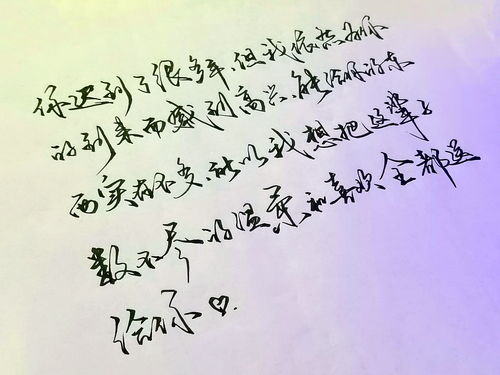 你迟到了很多年,但我依然为你
的到来而感到高兴.能给你的东
西实在不多,所以我想把这辈子
数不尽的温柔和喜欢全都送
给你♡.